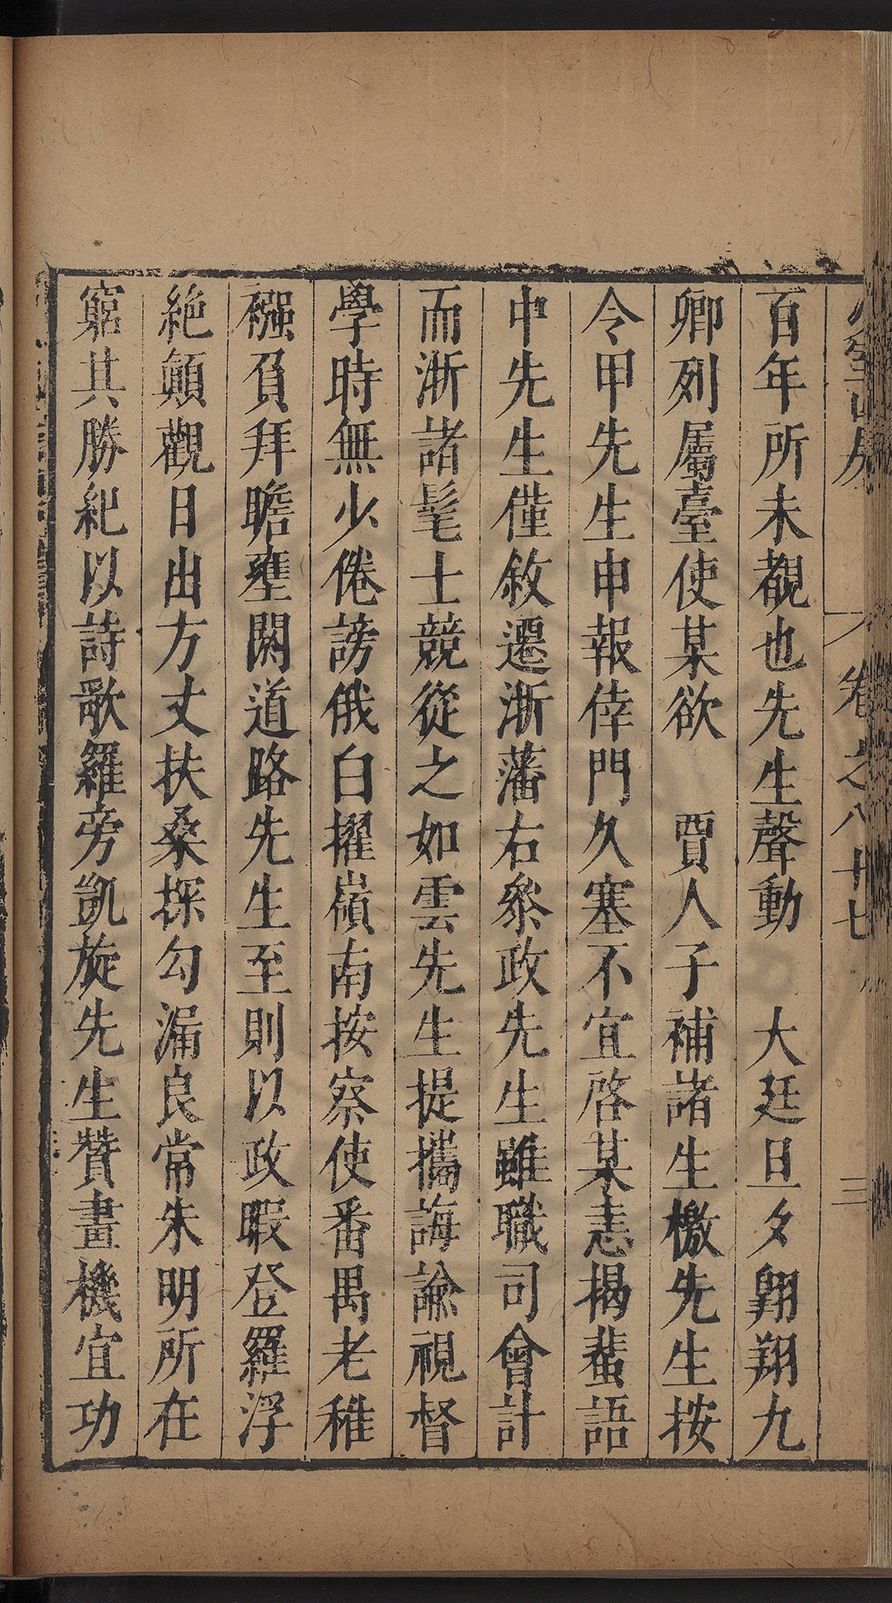 少室山房 卷之八十七 三
百年所未覩也先生聲動 大廷旦夕翶翔九
卿列屬臺使某欲 賈人子補諸生檄先生按
令甲先生申報倖門久塞不宜啓某恚揭蜚語
中先生僅敘遷浙藩右叅政先生雖職司會計
而浙諸髦士競從之如雲先生提攜誨諭視督
學時無少倦謗俄白擢嶺南按察使番禺老稚
襁負拜瞻壅閼道路先生至則以政暇登羅浮
絶顛觀日出方丈扶桑探勾漏良常朱明所在
窮其勝紀以詩歌羅旁凱旋先生贊畫機宜功